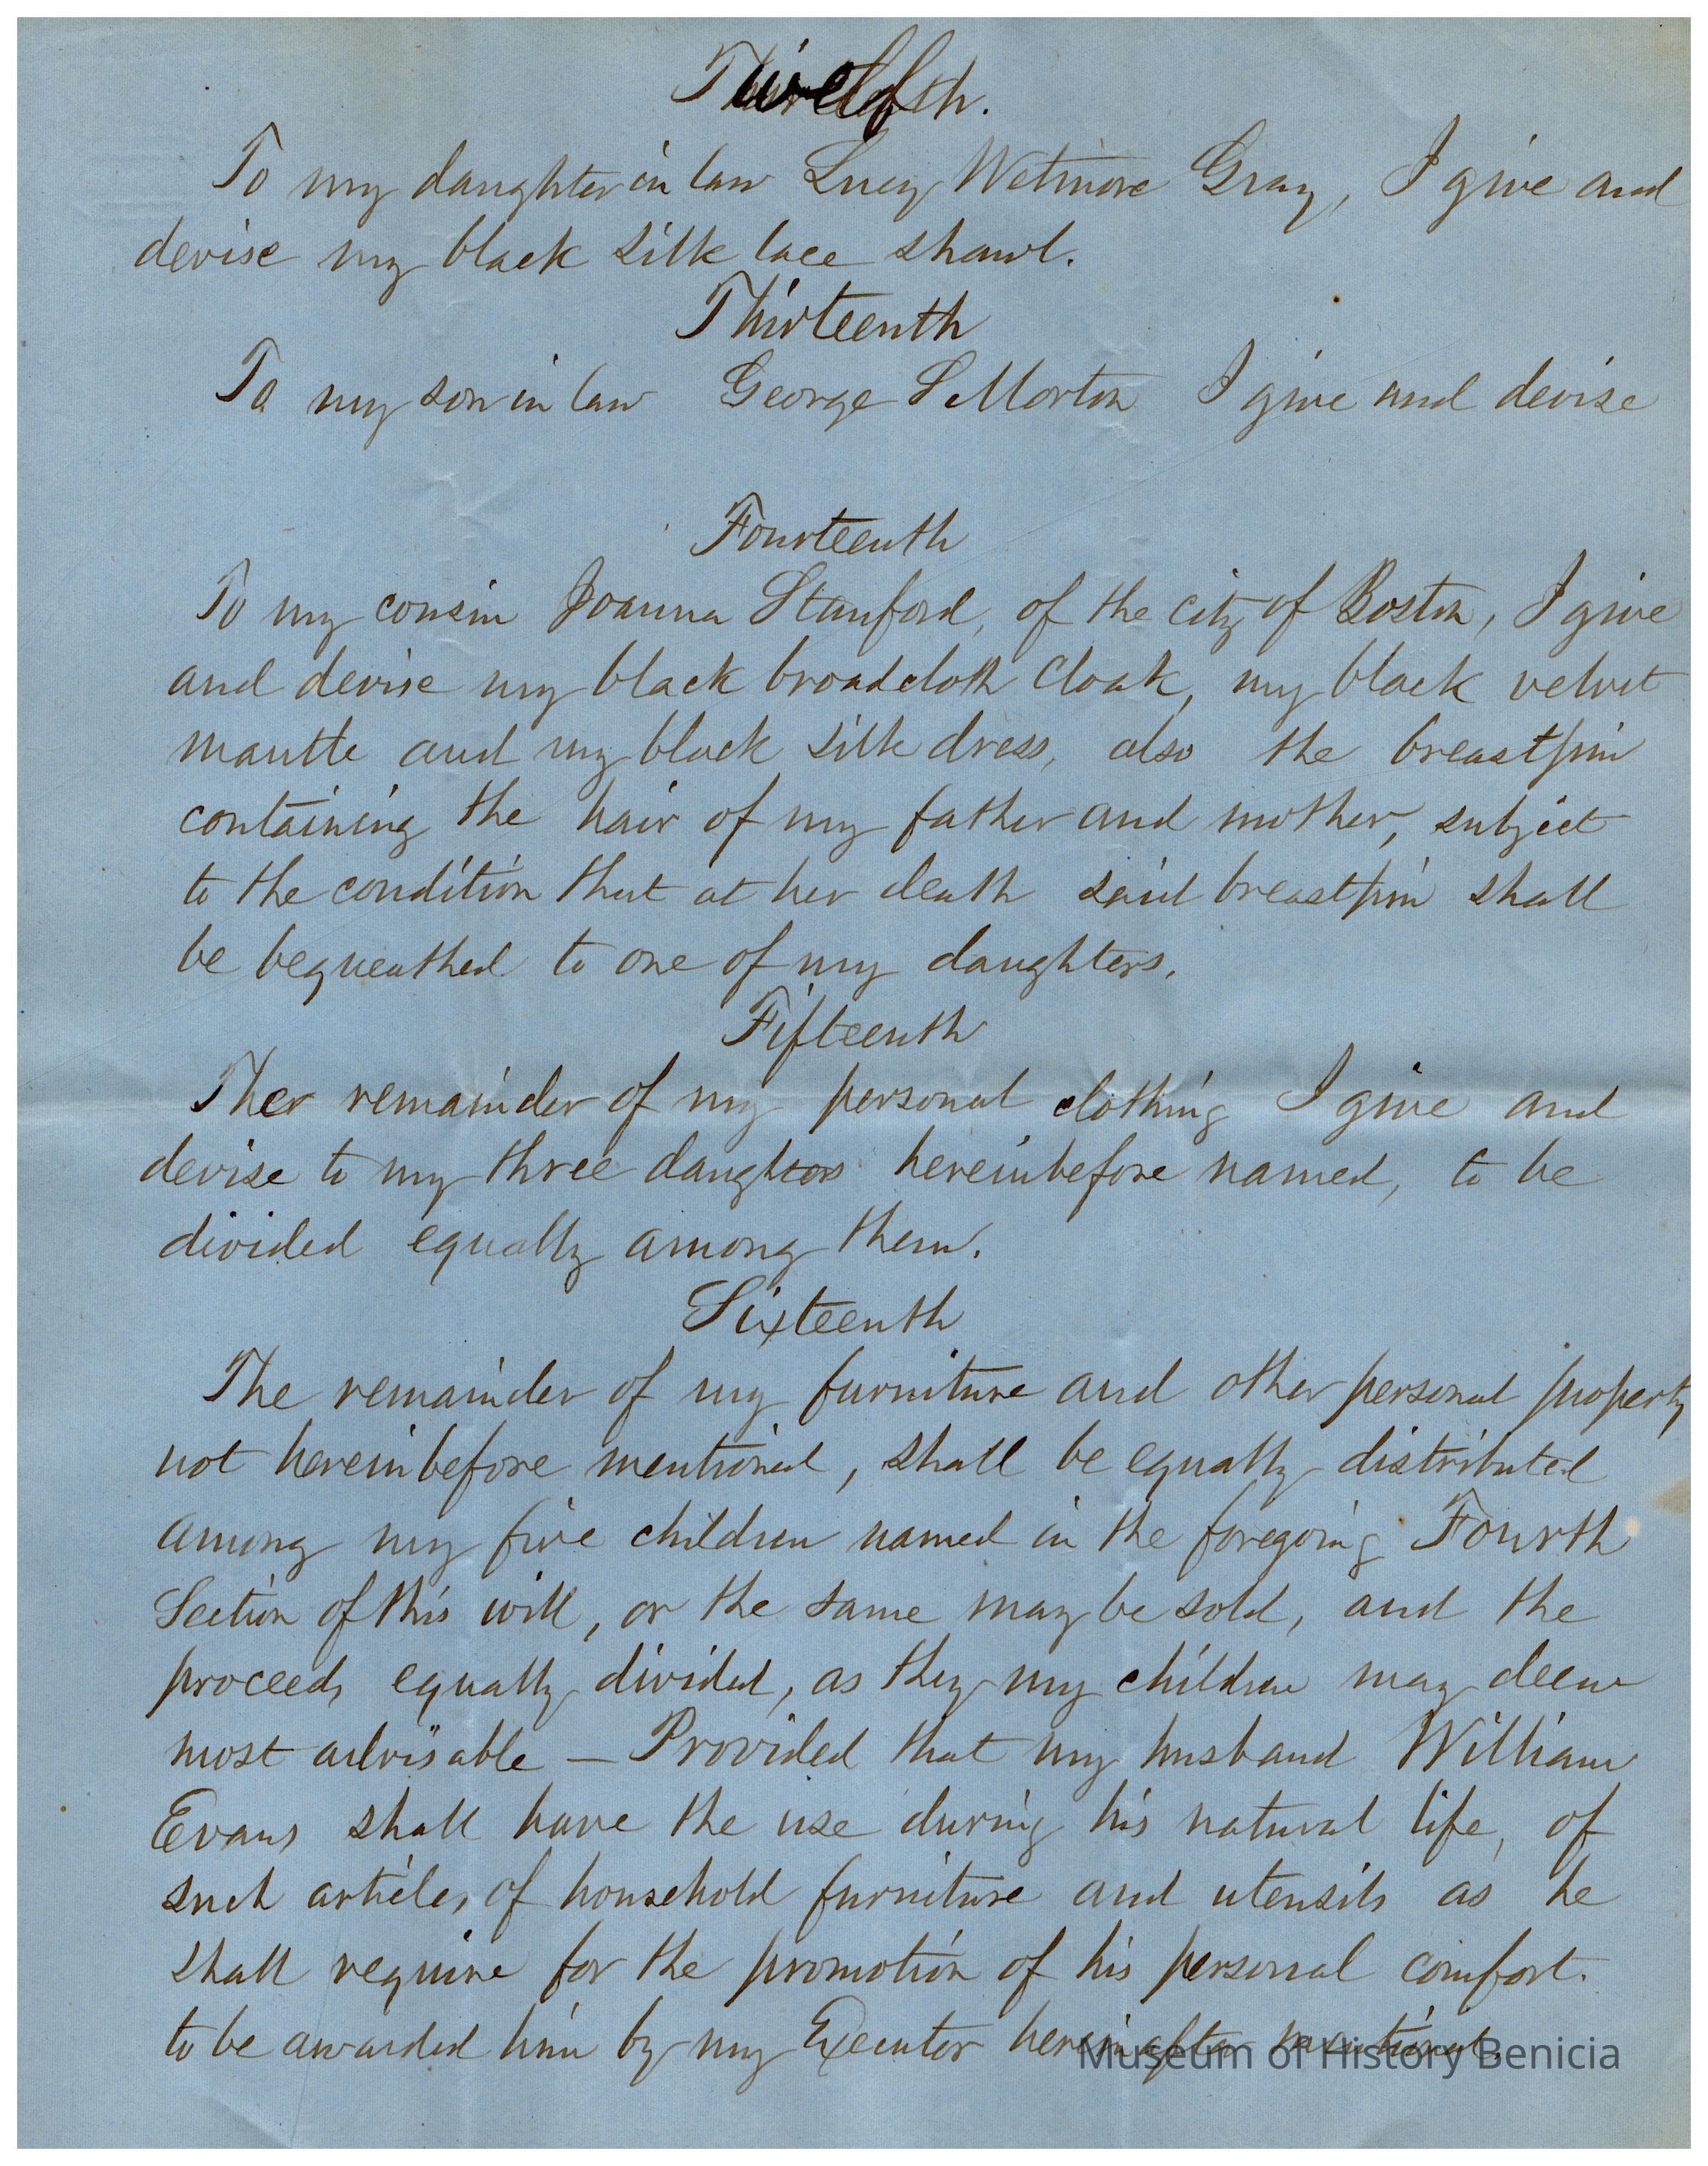 Twelfth.
To my daughter in law Lucy Wetmore Gray, I give and
devise my black silk lace shawl.
Thirteenth
To my son in law George S Morton I give and devise
Fourteenth
To my cousin Joanna Stanford, of the city of Boston, I give
and devise my black broadcloth cloak, my black velvet
mantle and my black silk dress, also the breastpin
containing the hair of my father and mother, subject
to the condition that at her death said breastpin shall
be bequeathed to one of my daughters.
Fifteenth
Ther remainder of my personal clothing I give and
devise to my three daughters hereinbefore named, to be
divided equally among them.
Sixteenth
The remainder of my furniture and other personal property
not hereinbefore mentioned, shall be equally distributed
among my five children named in the foregoing Fourth
Section of this will, or the same may be sold, and the
proceeds equally divided, as they my children may deem
most advisable — Provided that my husband William
Evans shall have the use during his natural life, of
such articles of household furniture and utensils as he
shall require for the promotion of his personal comfort.
to be awarded him by my Executor hereinafter mentioned.
Museum of History Benicia